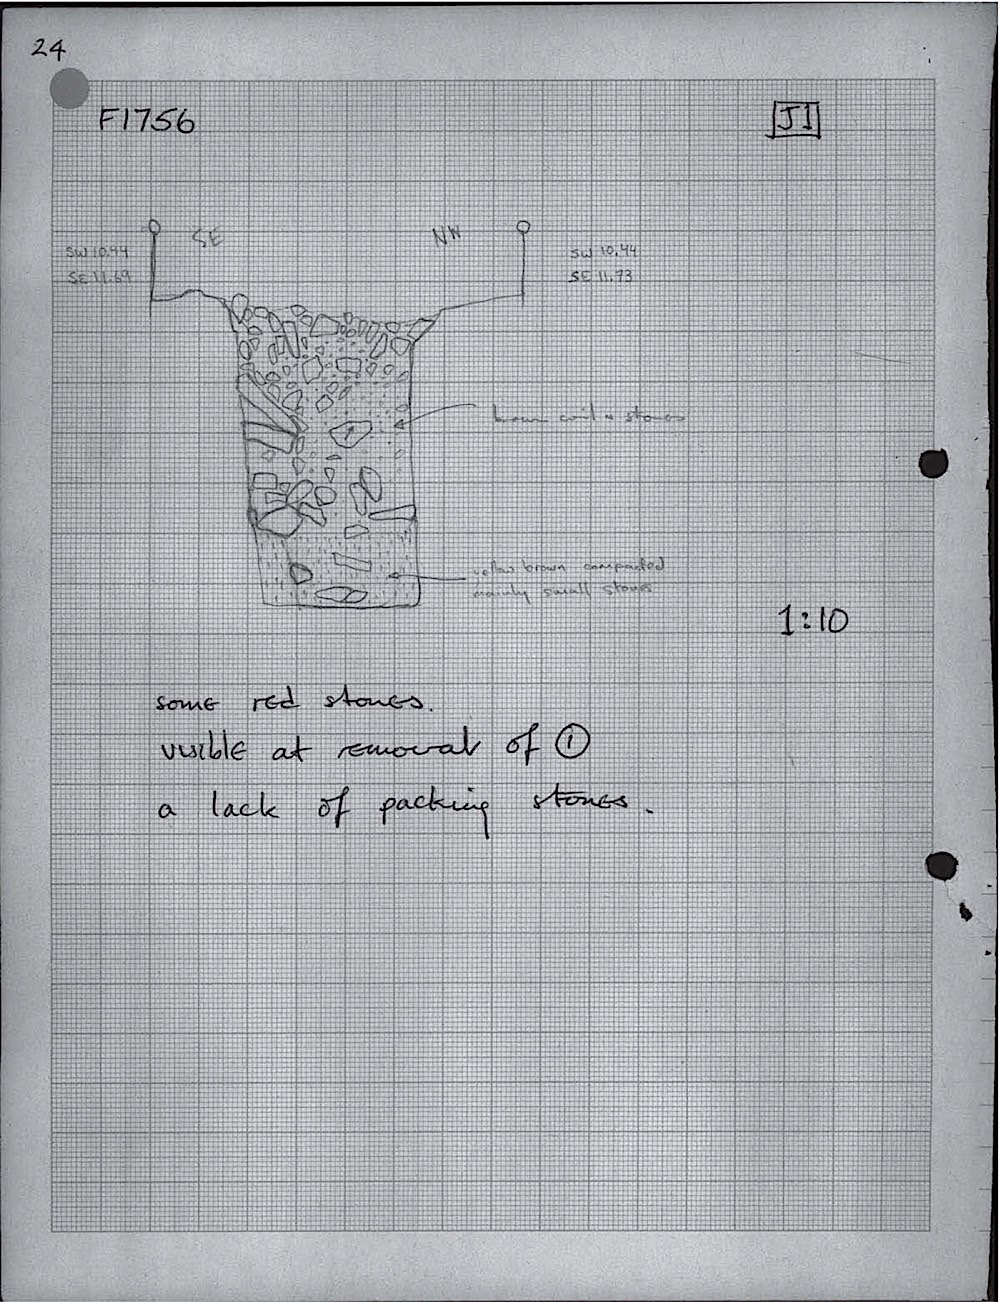 24
F1756
J1
SE
NW
SW 10.44
SE 11.69
SW 10.44
SE 11.73
brown soil + stones
yellow brown compacted
mainly small stones
1:10
some red stones.
visible at removal of ①
a lack of packing stones.